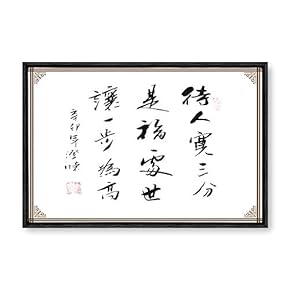 待人寬三分
是福處世
讓一步為高
辛卯年澄時